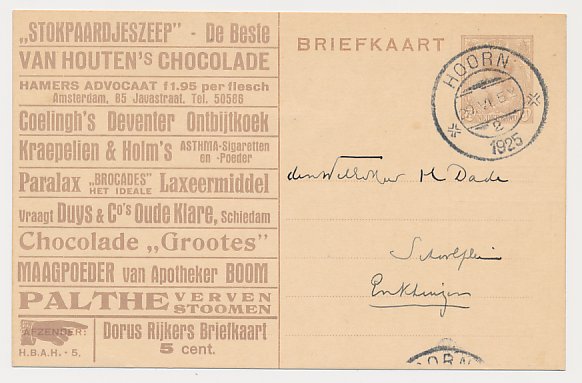 „STOKPAARDJESZEEP" - De Beste
VAN HOUTEN'S CHOCOLADE
HAMERS ADVOCAAT f1.95 per flesch
Amsterdam, 85 Javastraat. Tel. 50566
Coelingh's Deventer Ontbijtkoek
Kraepelien & Holm's ASTHMA-Sigaretten
en -Poeder
Paralax „BROCADES" Laxeermiddel
HET IDEALE
Vraagt Duys & Co's Oude Klare, Schiedam
Chocolade „Grootes"
MAAGPOEDER van Apotheker BOOM
PALTHE VERVEN
STOOMEN
AFZENDER:
H.B.A.H. - 5.
Dorus Rijkers Briefkaart
5 cent.
BRIEFKAART
HOORN
VI. 5
2
1925
den H Dade
Schoolplein
Enkhuizen
OORN